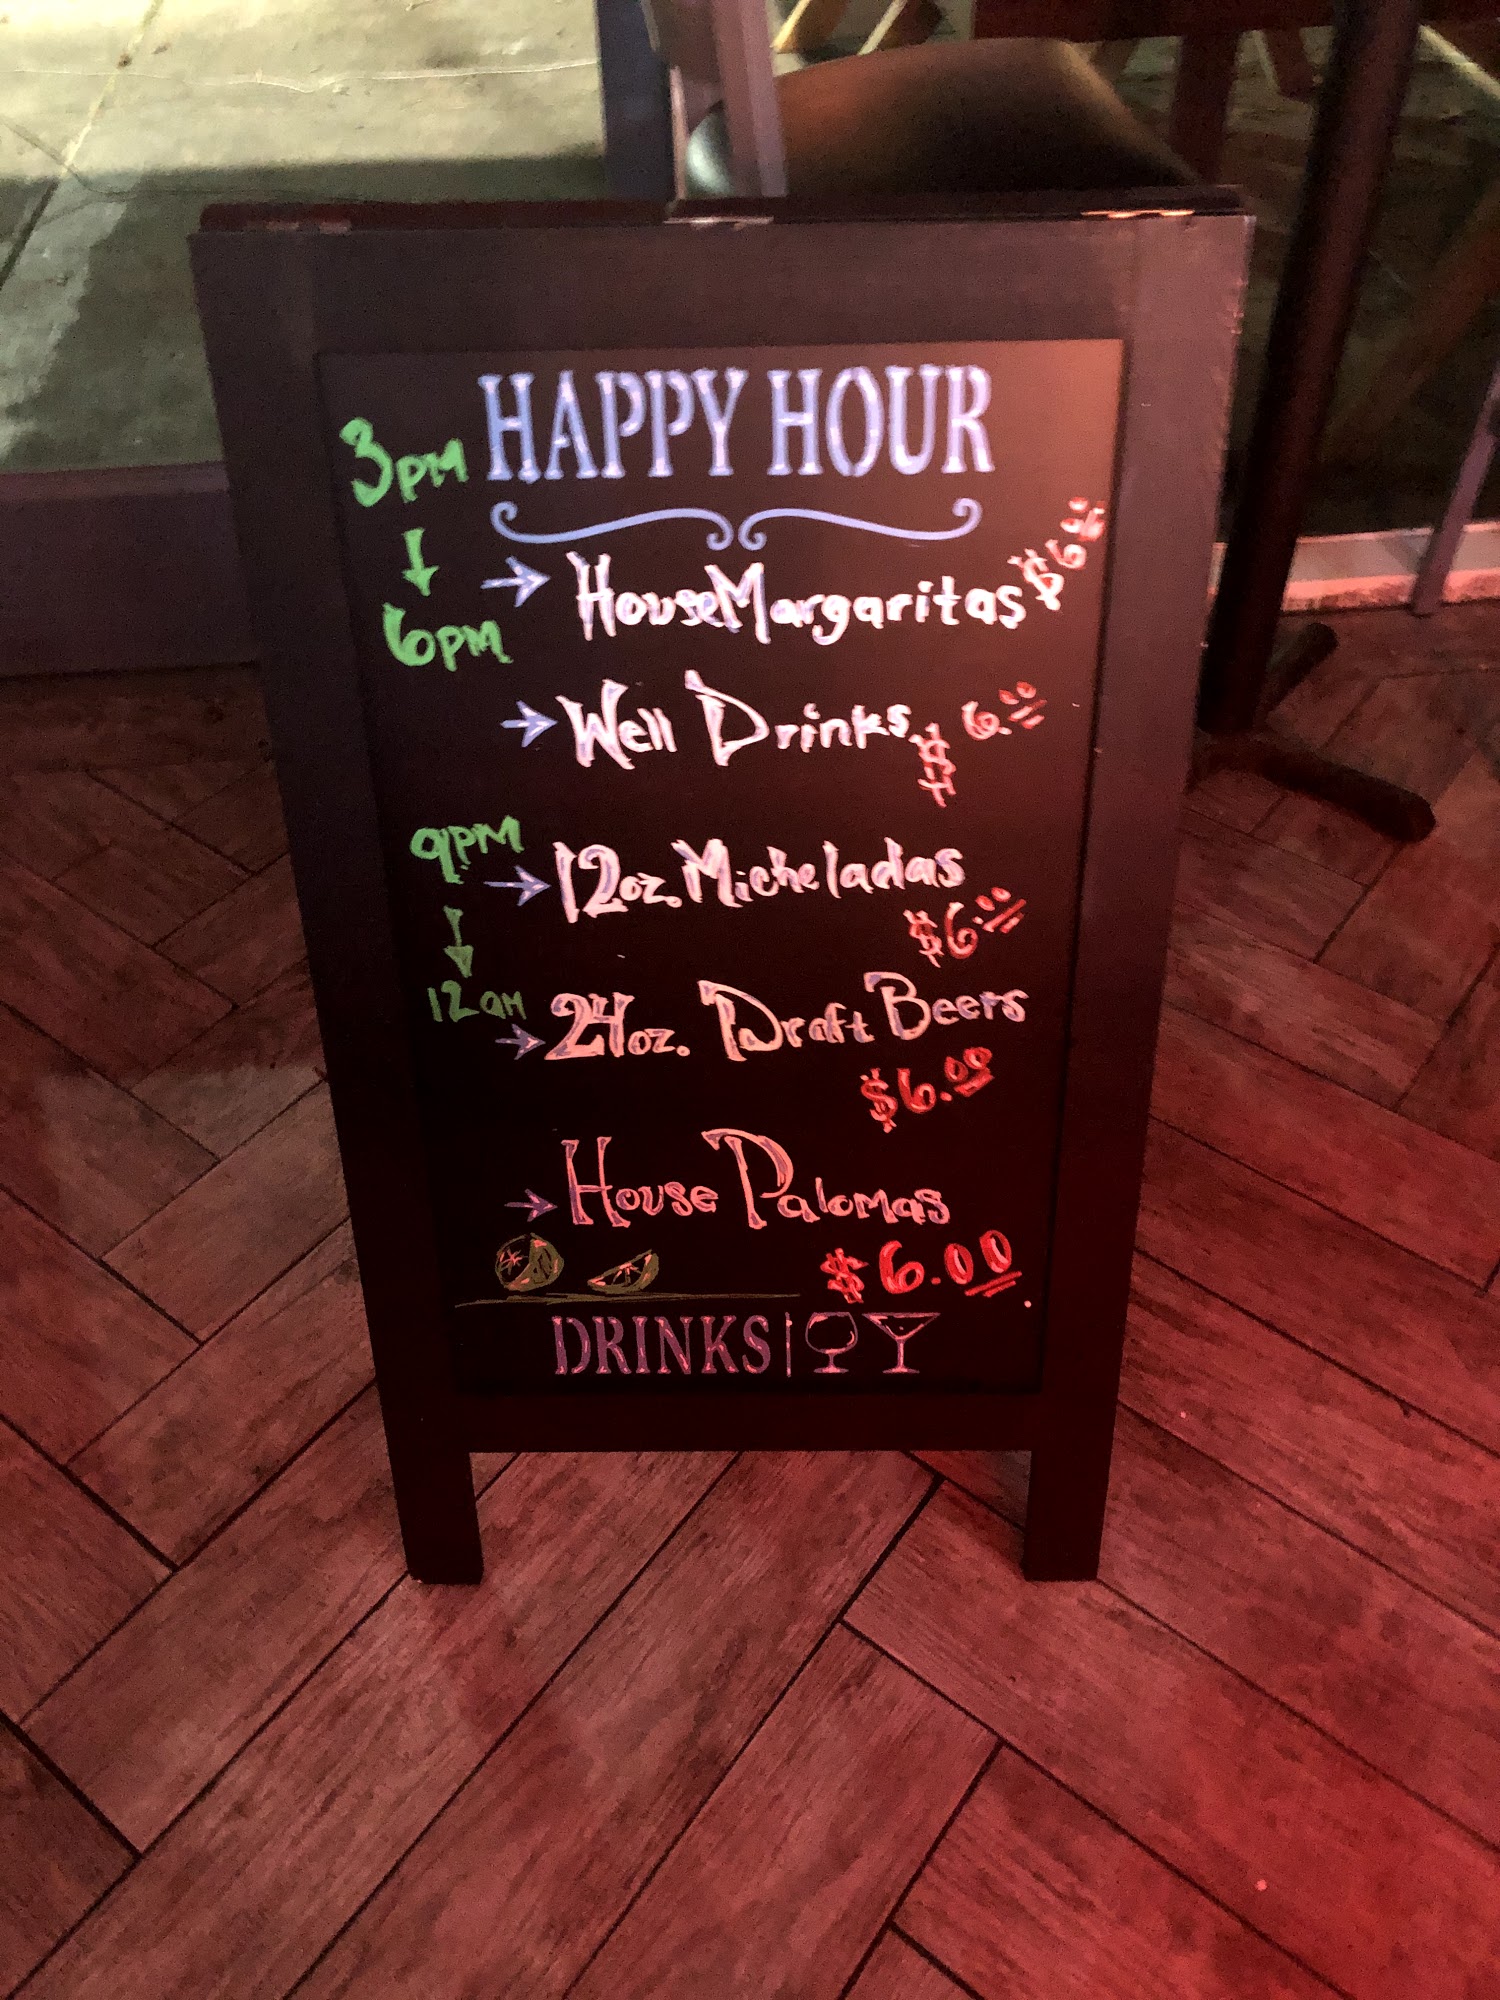 HAPPY HOUR
3PM
6PM
House Margaritas $6.00
Well Drinks. $6.00
9PM
12am
12oz. Micheladas
$6.00
24oz. Draft Beers
$6.00
House Palomas
$6.00
DRINKS